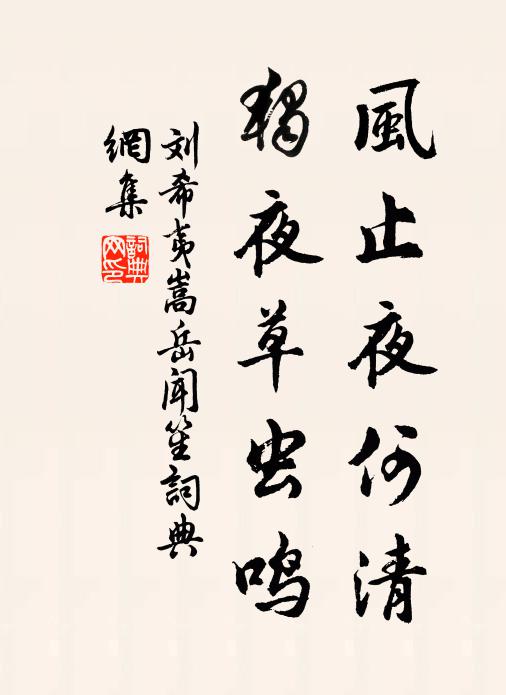 風止夜何清
獨夜草虫鳴
刘希夷嵩岳聞笙詞典
網集
詞典
网印